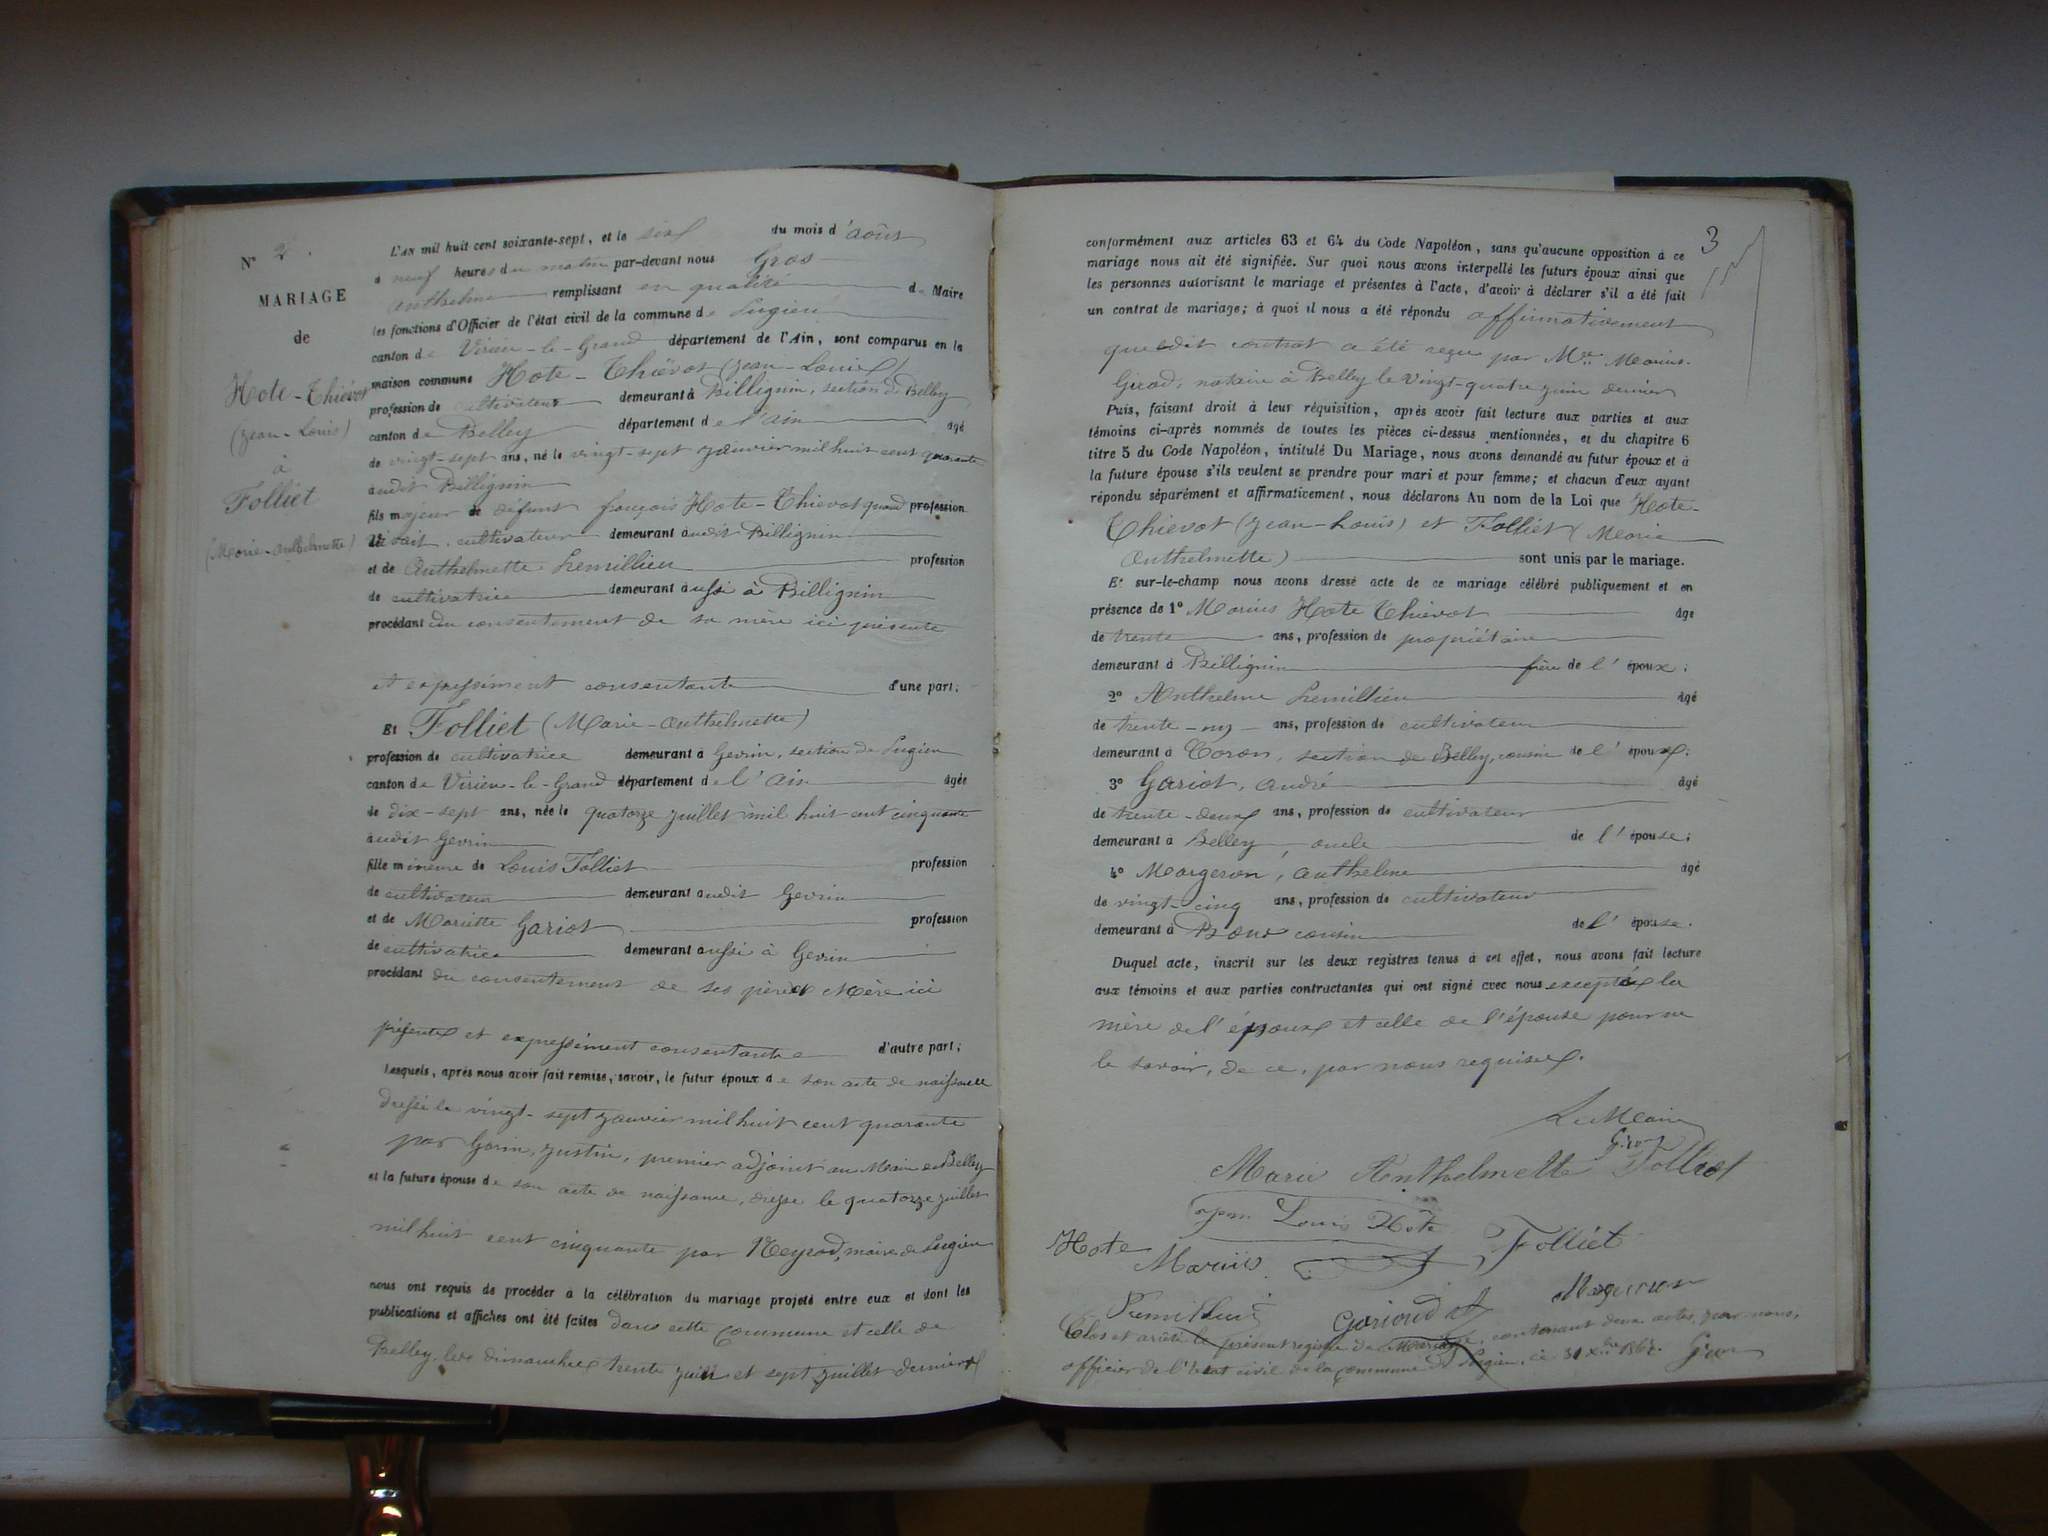 N° 2.
MARIAGE
de
Hote-Thiévot
(Jean-Louis)
à
Folliet
(Marie-Anthelmette)
L'AN mil huit cent soixante-sept, et le six du mois d'août
à neuf heures du matin par-devant nous Gros
Anthelme remplissant en qualité de Maire
les fonctions d'Officier de l'état civil de la commune de Lugieu
canton de Virieu-le-Grand département de l'Ain, sont comparus en la
maison commune Hote-Thiévot (Jean-Louis)
profession de cultivateur demeurant à Billignin, section de Belley
canton de Belley département de l'Ain âgé
de vingt-sept ans, né le vingt-sept janvier mil huit cent quarante
audit Billignin
fils majeur de défunt françois Hote-Thievot quand profession
vivait cultivateur demeurant audit Billignin
et de Anthelmette Lemillieu profession
de cultivatrice demeurant aussi à Billignin
procédant du consentement de sa mère ici présente
et expressément consentante d'une part;
Et Folliet (Marie-Anthelmette)
profession de cultivatrice demeurant à Gevrin, section de Lugieu
canton de Virieu-le-Grand département de l'Ain âgée
de dix-sept ans, née le quatorze juillet mil huit cent cinquante
audit Gevrin
fille mineure de Louis Folliet profession
de cultivateur demeurant audit Gevrin
et de Mariette Gariot profession
de cultivatrice demeurant aussi à Gevrin
procédant du consentement de ses père et Mère ici
présents et expressément consentants d'autre part;
Lesquels, après nous avoir fait remise, savoir, le futur époux de son acte de naissance
dressé le vingt-sept janvier mil huit cent quarante
par Gorin, Justin, premier adjoint au Maire de Belley
et la future épouse de son acte de naissance, dresse le quatorze juillet
mil huit cent cinquante par Neyrod, maire de Lugieu
nous ont requis de procéder à la célébration du mariage projeté entre eux et dont les
publications et affiches ont été faites dans cette Commune et celle de
Belley, les dimanches trente juin et sept juillet derniers
3
conformément aux articles 63 et 64 du Code Napoléon, sans qu'aucune opposition à ce
mariage nous ait été signifiée. Sur quoi nous avons interpellé les futurs époux ainsi que
les personnes autorisant le mariage et présentes à l'acte, d'avoir à déclarer s'il a été fait
un contrat de mariage; à quoi il nous a été répondu affirmativement
que ledit contrat a été reçu par Me Marius
Girod, notaire à Belley le vingt-quatre juin dernier
Puis, faisant droit à leur réquisition, après avoir fait lecture aux parties et aux
témoins ci-après nommés de toutes les pièces ci-dessus mentionnées, et du chapitre 6
titre 5 du Code Napoléon, intitulé Du Mariage, nous avons demandé au futur époux et à
la future épouse s'ils veulent se prendre pour mari et pour femme; et chacun d'eux ayant
répondu séparément et affirmativement, nous déclarons Au nom de la Loi que Hote-
Thievot (Jean-Louis) et Folliet (Marie
Anthelmette) sont unis par le mariage.
Et sur-le-champ nous avons dressé acte de ce mariage célébré publiquement et en
présence de 1° Marius Hote Thievot âgé
de trente ans, profession de propriétaire
demeurant à Billignin frère de l'époux;
2° Anthelme Lemillieu âgé
de trente-un ans, profession de cultivateur
demeurant à Coron, section de Belley, cousin de l'époux;
3° Gariot, André âgé
de trente-deux ans, profession de cultivateur
demeurant à Belley, oncle de l'épouse;
4° Margeron, Anthelme âgé
de vingt-cinq ans, profession de cultivateur
demeurant à cousin de l'épouse.
Duquel acte, inscrit sur les deux registres tenus à cet effet, nous avons fait lecture
aux témoins et aux parties contractantes qui ont signé avec nous exceptés la
mère de l'époux et celle de l'épouse pour ne
le savoir, de ce, par nous requises.
Le Maire
Gros
Marie Anthelmette Folliet
Jean Louis Hote
Hote Folliet
Marius
Margeron
Clos et arrêté le présent registre de Mariage, contenant deux actes, par nous,
officier de l'état civil de la commune de Lugieu, ce 31 Xbre 1867. Gros